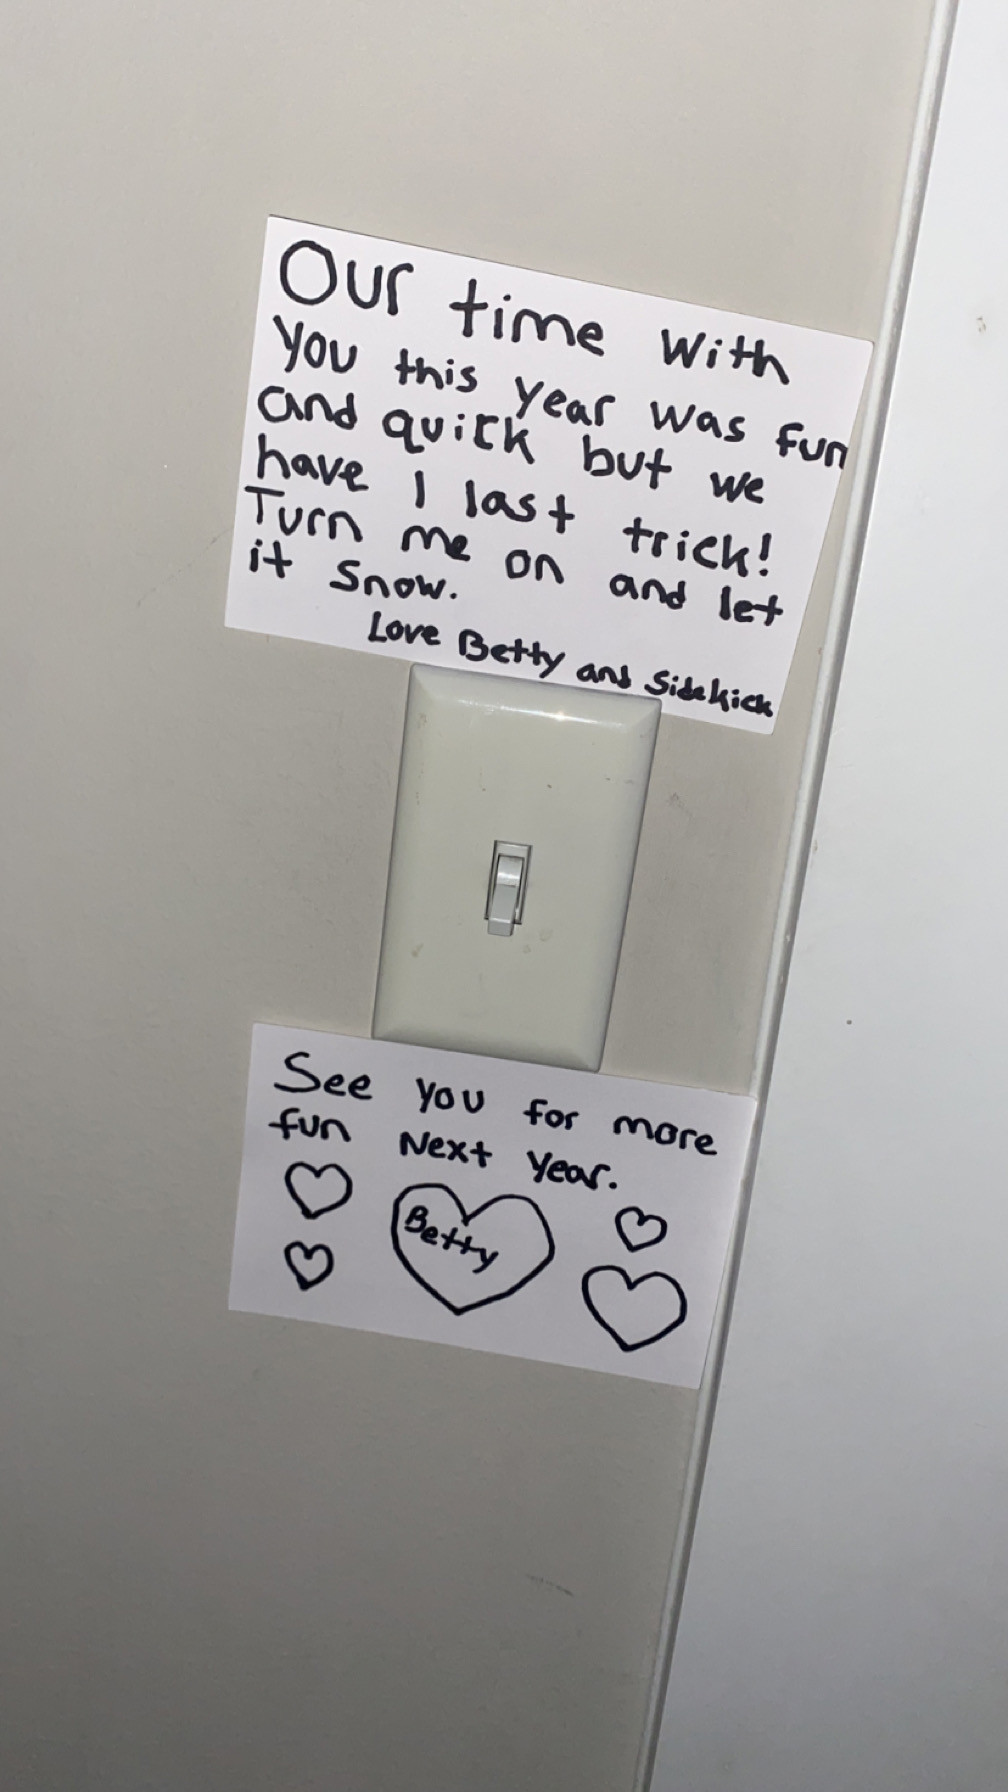 Our time with
you this year was fun
and quick but we
have 1 last trick!
Turn me on and let
it snow.
Love Betty and Sidekick
See you for more
fun Next year.
Betty